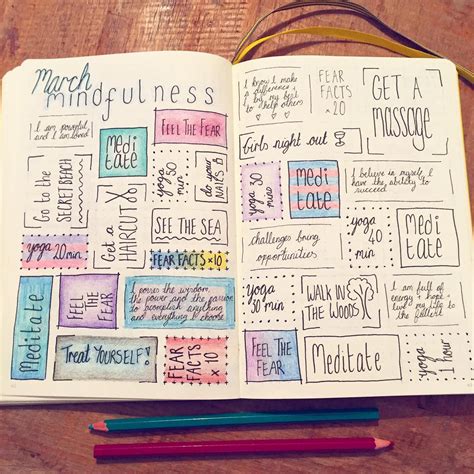 March
mindfulness
I am powerful
and I am loved
Medi
tate
FEEL THE FEAR
Go to the
SECRET BEACH
yoga 30
min
do your
NAILS
Get a
HAIRCUT
SEE THE SEA
yoga 20 min
FEAR FACTS x10
Meditate
FEEL
THE
FEAR
I possess the wisdom,
the power and the passion
to accomplish anything
and everything I choose
Treat YOURSELF!
FEAR
FACTS
x 10
I know I make
a difference
by
my best
to help others
FEAR
FACTS
x20
GET A
MASSAGE
Girls night out
yoga 30
min
Medi
tate
I believe in myself, I
have the ability to
succeed
challenges bring
opportunities
yoga
40
min
Medi
tate
yoga
30 min
WALK IN
THE WOODS
I am full of
energy + hope
live my life to
the fullest
FEEL
THE
FEAR
Meditate
yoga
1 hour